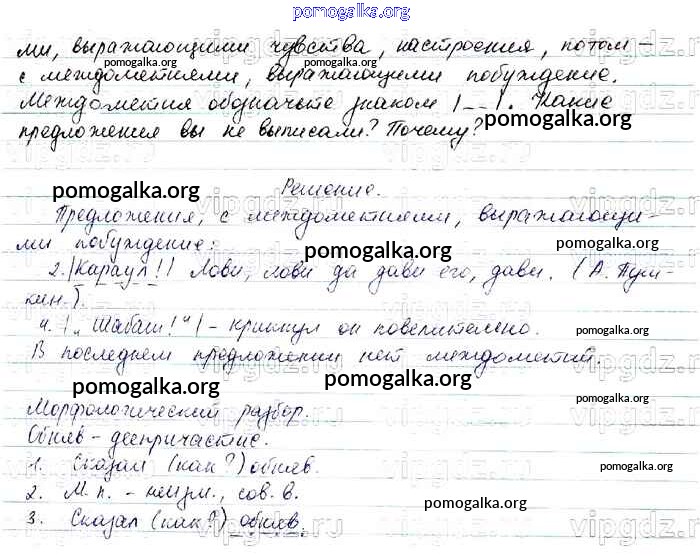 pomogalka.org
ми, выражающими чувства, настроения, потом –
с междометиями, выражающими побуждение.
Междометия обозначьте знаком |__|. Какие
предложения вы не выписали? Почему?
pomogalka.org
Решение.
pomogalka.org
Предложения, с междометиями, выражающи-
ми побуждение:
pomogalka.org
2. |Караул!| Лови, лови да дави его, дави. (А. Пуш-
кин.).
4. |„Шабаш!“| – крикнул он повелительно.
pomogalka.org
В последнем предложении нет междометий.
pomogalka.org
pomogalka.org
Морфологический разбор.
pomogalka.org
Обняв – деепричастие.
1. Сказал (как?) обняв.
pomogalka.org
2. М. п. – неизм., сов. в.
pomogalka.org
3. Сказал (как?) обняв.
vipgdz.ru